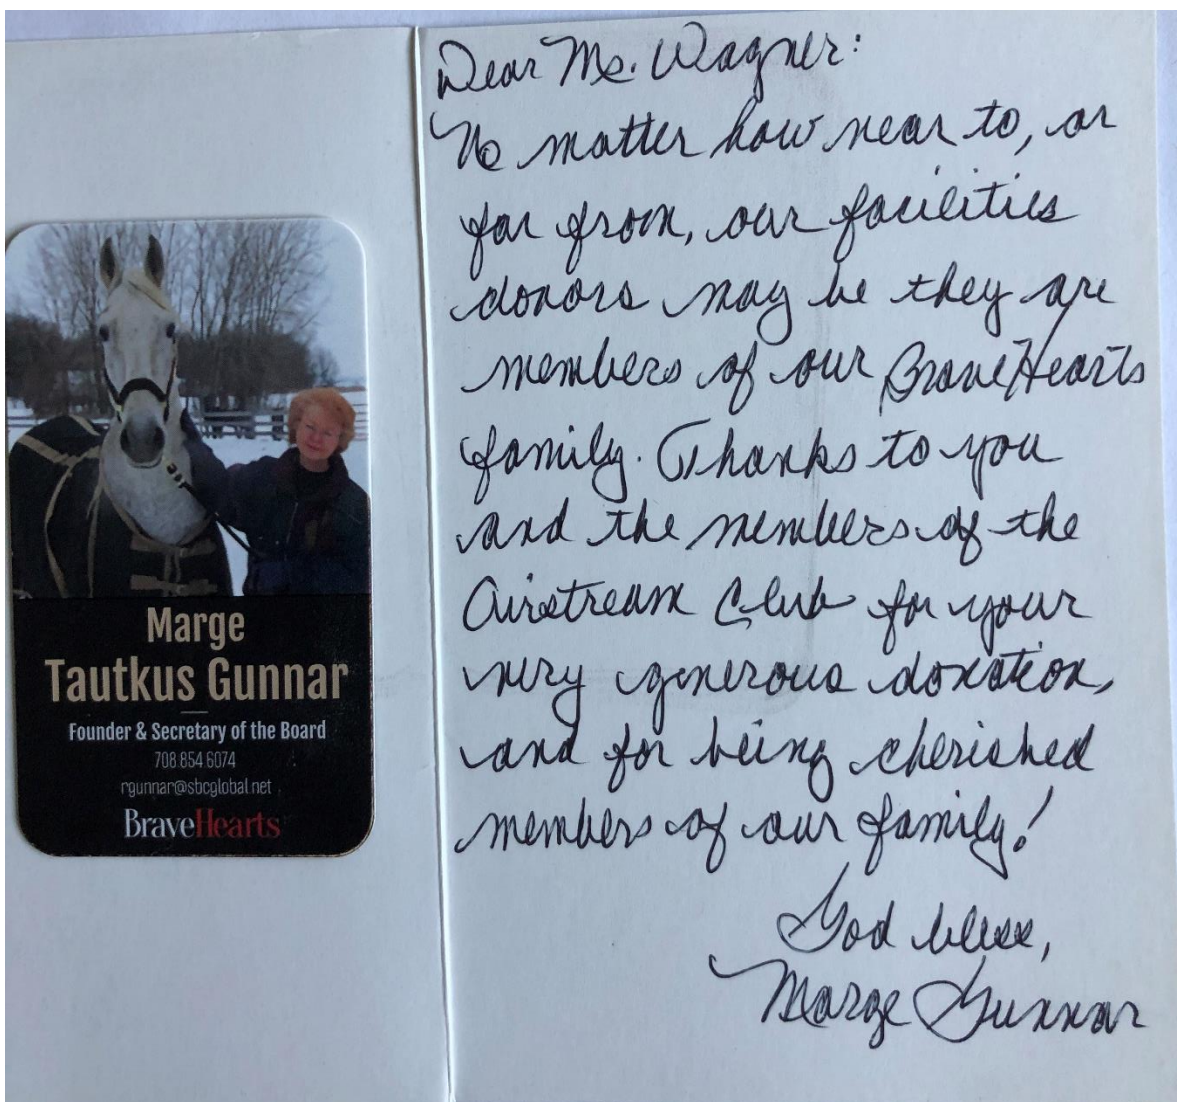 Marge
Tautkus Gunnar
Founder & Secretary of the Board
708 854 6074
rgunnar@sbcglobal.net
BraveHearts
Dear Ms. Wagner:
No matter how near to, or
far from, our facilities
donors may be they are
members of our BraveHearts
family. Thanks to you
and the members of the
Airstream Club for your
very generous donation,
and for being cherished
members of our family!
God bless,
Marge Gunnar